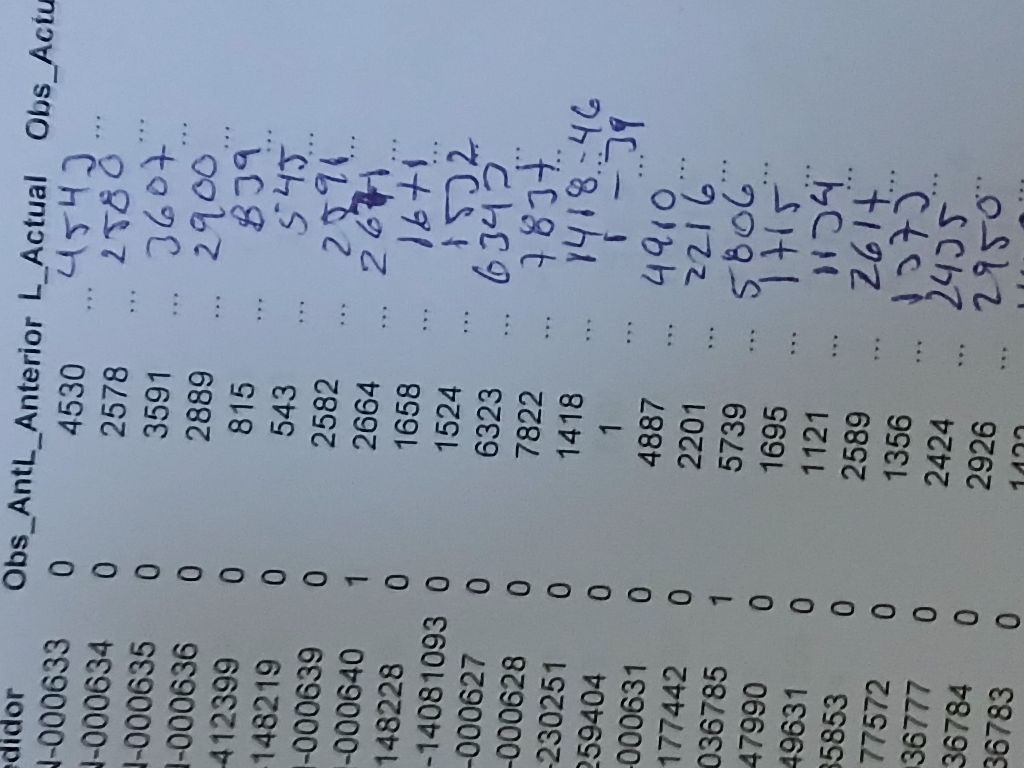 edidor Obs_AntL_Anterior L_Actual Obs_Actu
N-000633 0 4530 ... 4543 ...
N-000634 0 2578 ... 2580 ...
N-000635 0 3591 ... 3607 ...
N-000636 0 2889 ... 2900 ...
412399 0 815 ... 839 ...
148219 0 543 ... 545 ...
-000639 0 2582 ... 2591 ...
-000640 1 2664 ... 2671 ...
148228 0 1658 ... 1671 ...
-14081093 0 1524 ... 1532 ...
-000627 0 6323 ... 6343 ...
-000628 0 7822 ... 7837 ...
-230251 0 1418 ... 1418 -46 ...
259404 0 1 ... 1 -39 ...
000631 0 4887 ... 4910 ...
177442 0 2201 ... 2216 ...
036785 1 5739 ... 5806 ...
47990 0 1695 ... 1715 ...
49631 0 1121 ... 1134 ...
35853 0 2589 ... 2617 ...
77572 0 1356 ... 1373 ...
36777 0 2424 ... 2435 ...
36784 0 2926 ... 2950 ...
36783 0